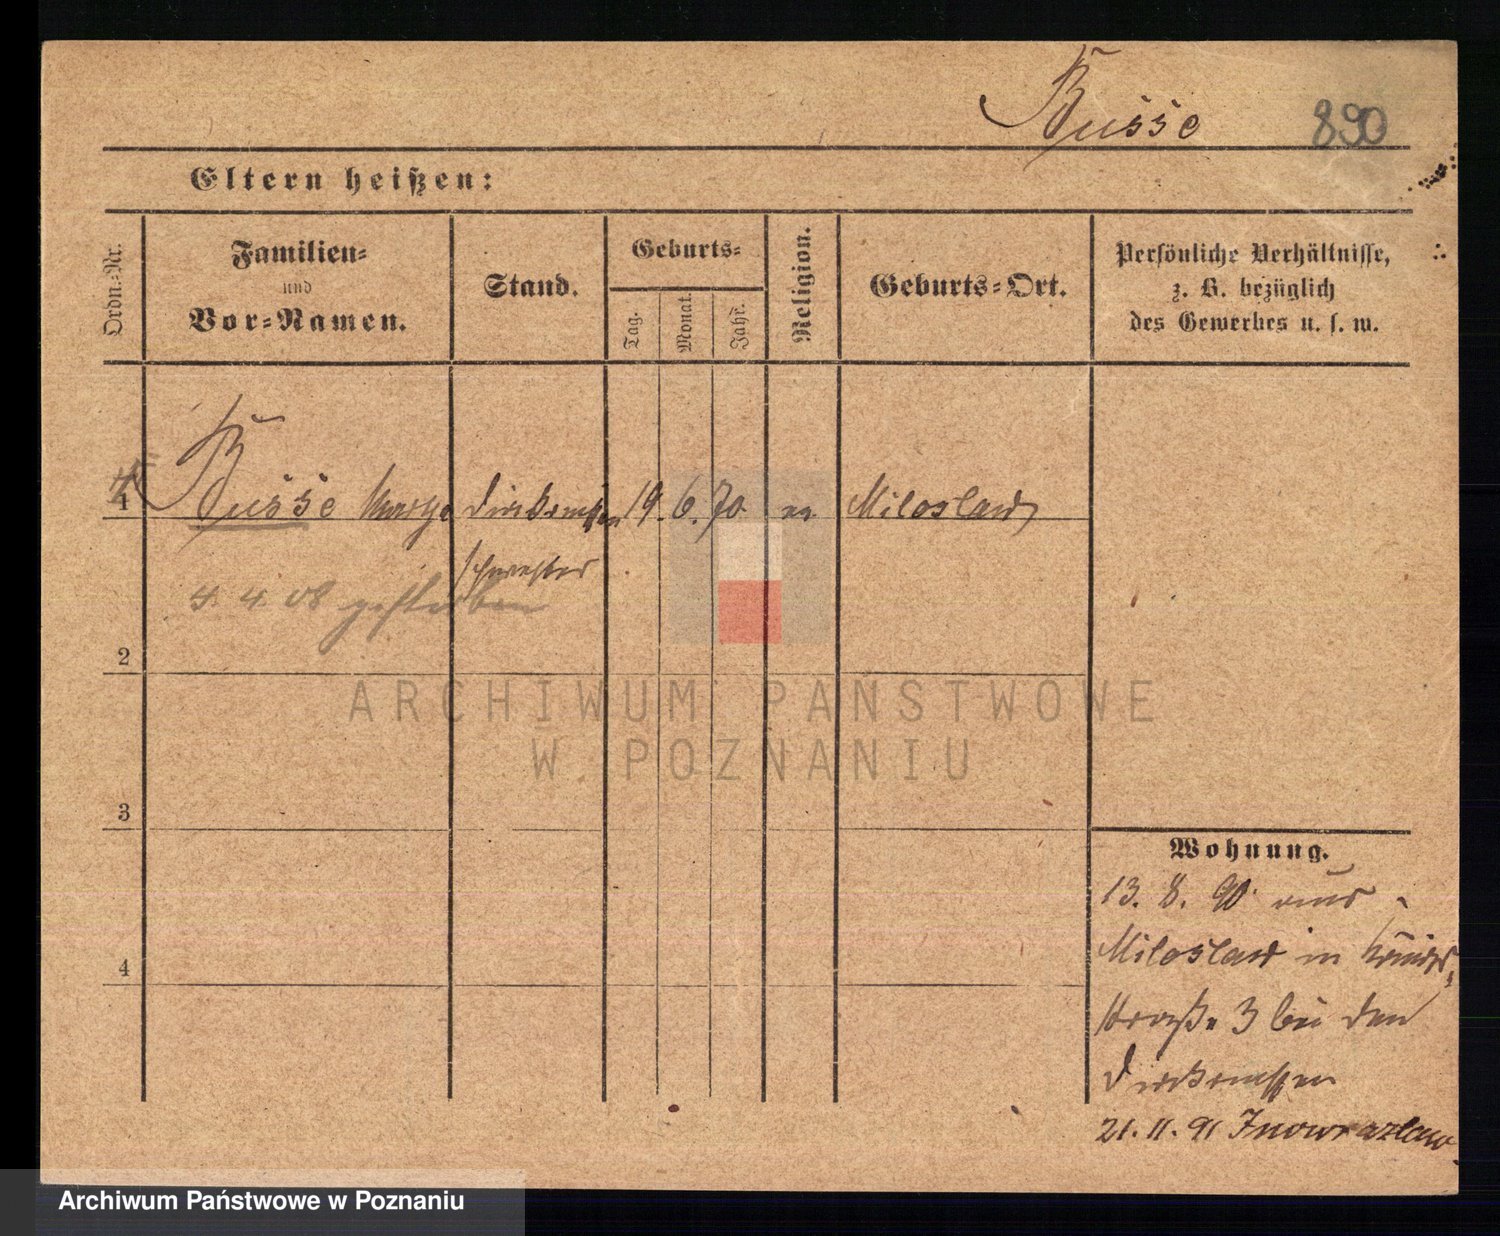 Busse 890
Eltern heißen:
Ordn.-Nr.
Familien-
und
Vor-Namen.
Stand.
Geburts-
Tag.
Monat.
Jahr.
Religion.
Geburts-Ort.
Persönliche Verhältnisse,
z. B. bezüglich
des Gewerbes u. s. w.
1 Busse Diakonissen 19. 6. 70. Miloslaw
schwester
4. 4. 08 gestorben
2
ARCHIWUM PAŃSTWOWE
W POZNANIU
3
Wohnung.
13. 8. 90 aus
4
Miloslaw in
straße 3 bei den
Diakonissen
21. 11. 91 Inowrazlaw
Archiwum Państwowe w Poznaniu